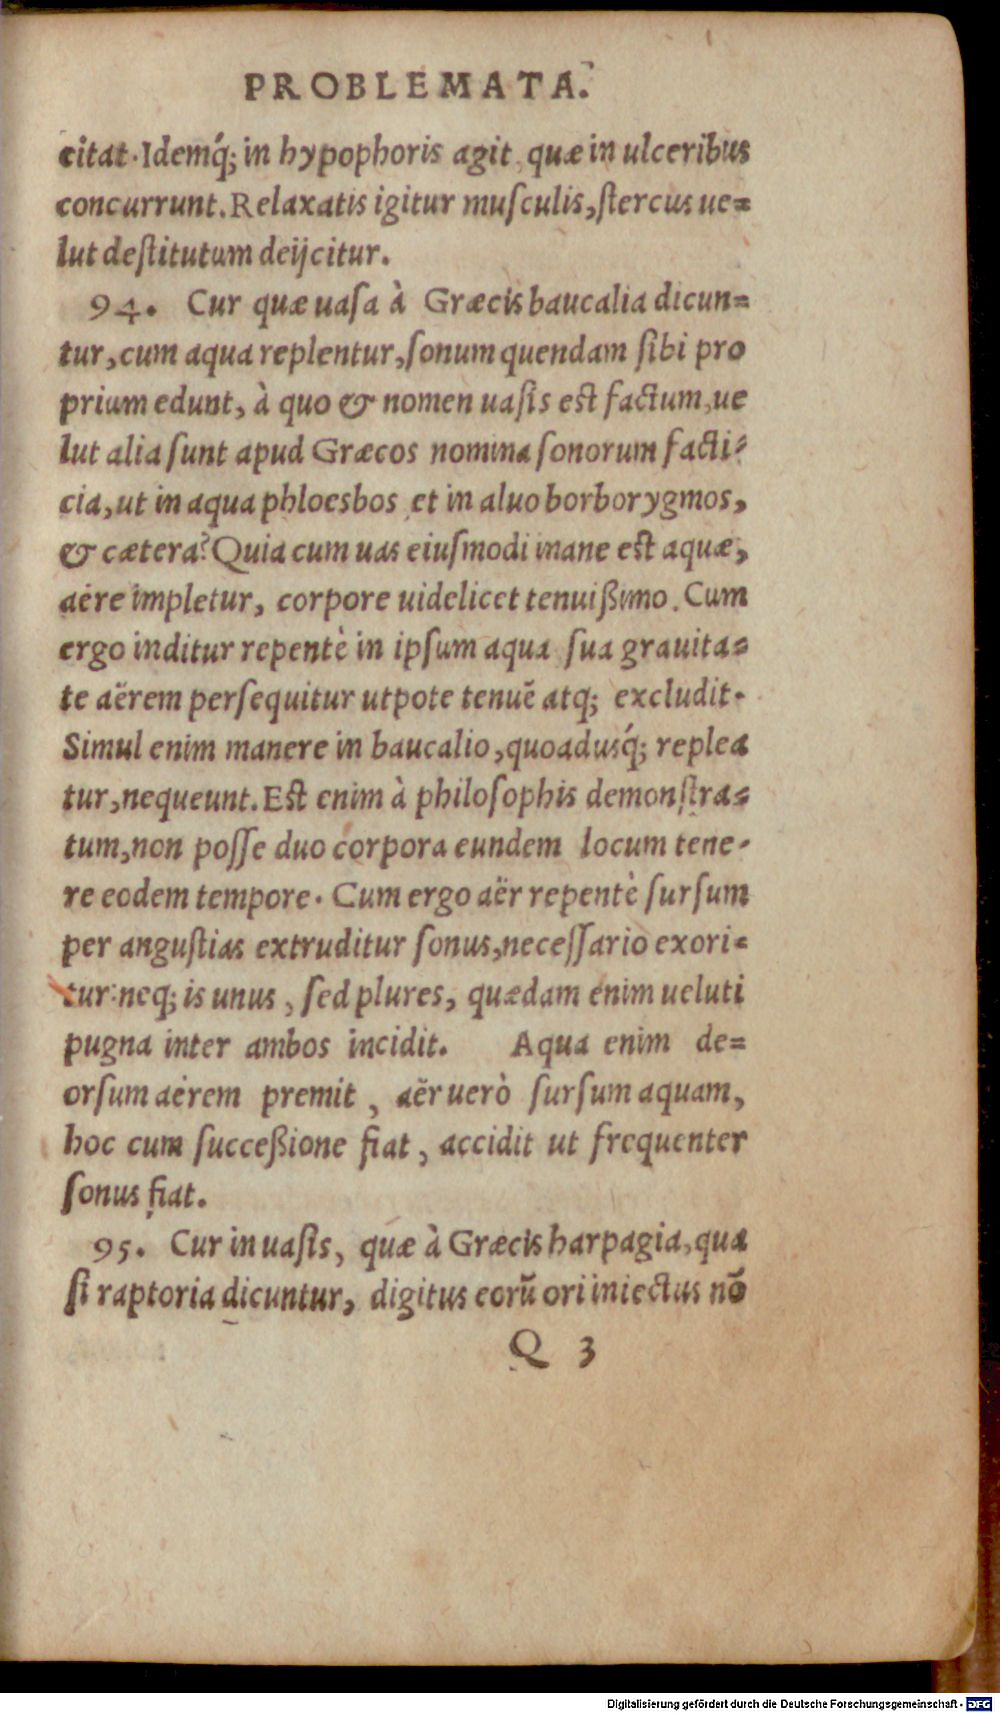 PROBLEMATA.
citat. Idemq́; in hypophoris agit, quæ in ulceribus
concurrunt. Relaxatis igitur muſculis, ſtercus ue=
lut deſtitutum deijcitur.
94. Cur quæ uaſa à Græcis baucalia dicun=
tur, cum aqua replentur, ſonum quendam ſibi pro
prium edunt, à quo & nomen uaſis eſt factum, ue
lut alia ſunt apud Græcos nomina ſonorum facti=
cia, ut in aqua phloesbos et in aluo borborygmos,
& cætera? Quia cum uas eiuſmodi inane eſt aquæ,
aëre impletur, corpore uidelicet tenuißimo. Cum
ergo inditur repentè in ipſum aqua ſua grauita=
te aërem perſequitur utpote tenuē atq; excludit.
Simul enim manere in baucalio, quoadusq́; replea
tur, nequeunt. Eſt enim à philoſophis demonſtra=
tum, non poſſe duo corpora eundem locum tene=
re eodem tempore. Cum ergo aër repentè ſurſum
per anguſtias extruditur ſonus, neceſſario exori=
tur: neq; is unus, ſed plures, quædam enim ueluti
pugna inter ambos incidit. Aqua enim de=
orſum aërem premit, aër uerò ſurſum aquam,
hoc cum ſucceßione fiat, accidit ut frequenter
ſonus fiat.
95. Cur in uaſis, quæ à Græcis harpagia, qua
ſi raptoria dicuntur, digitus eorū ori iniectus nō
Q 3
Digitalisierung gefördert durch die Deutsche Forschungsgemeinschaft - DFG